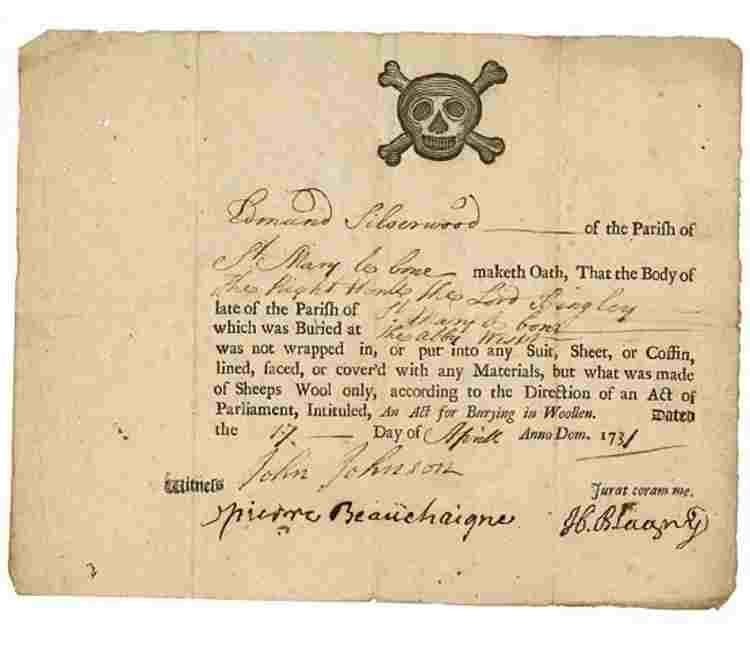 Edmund Silverwood of the Pariſh of
St. Mary le bone maketh Oath, That the Body of
The Right Honble The Lord Bingley
late of the Pariſh of St Mary le bone
which was Buried at The Abby West
was not wrapped in, or put into any Suit, Sheet, or Coffin,
lined, faced, or cover'd with any Materials, but what was made
of Sheeps Wool only, according to the Direction of an Act of
Parliament, Intituled, An Act for Burying in Woollen. Dated
the 17 Day of Aprill Anno Dom. 1731
John Johnson
Witneſs
Jurat coram me.
pierre Beaüchaigne